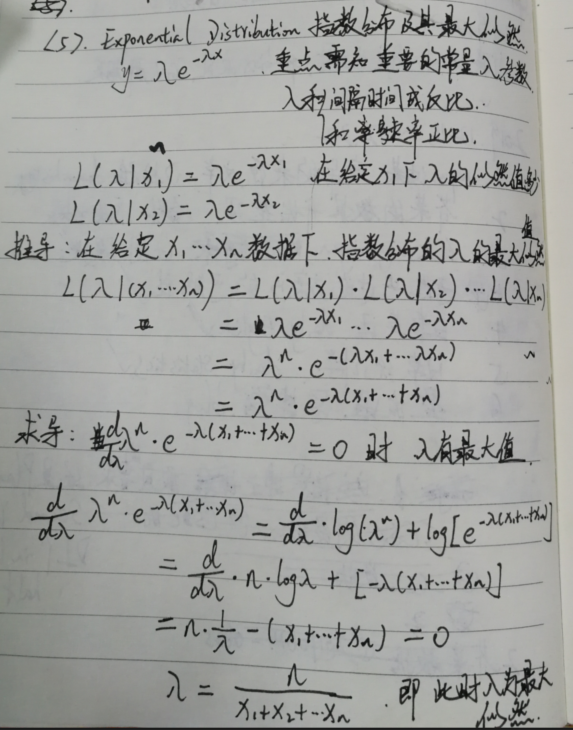 <5>. Exponential Distribution 指数分布及其最大似然
y = λe^{-λx} . 重点需知重要的常量λ参数
λ和间隔时间成反比.
和频率正比.
L(λ|x₁) = λe^{-λx₁} 在给定x₁下λ的似然值
L(λ|x₂) = λe^{-λx₂}
推导: 在给定 x₁…xₙ 数据下. 指数分布的λ的最大似然值
L(λ|(x₁,…xₙ)) = L(λ|x₁)·L(λ|x₂)…L(λ|xₙ)
= λe^{-λx₁} … λe^{-λxₙ}
= λⁿ·e^{-(λx₁+…λxₙ)}
= λⁿ·e^{-λ(x₁+…+xₙ)}
求导: d/dλ λⁿ·e^{-λ(x₁+…+xₙ)} = 0 时 λ有最大值.
d/dλ λⁿ·e^{-λ(x₁+…xₙ)} = d/dλ·log(λⁿ)+log[e^{-λ(x₁+…+xₙ)}]
= d/dλ·n·logλ + [-λ(x₁+…+xₙ)]
= n·1/λ - (x₁+…+xₙ) = 0
λ = n/(x₁+x₂+…xₙ) . 即此时λ为最大
似然.